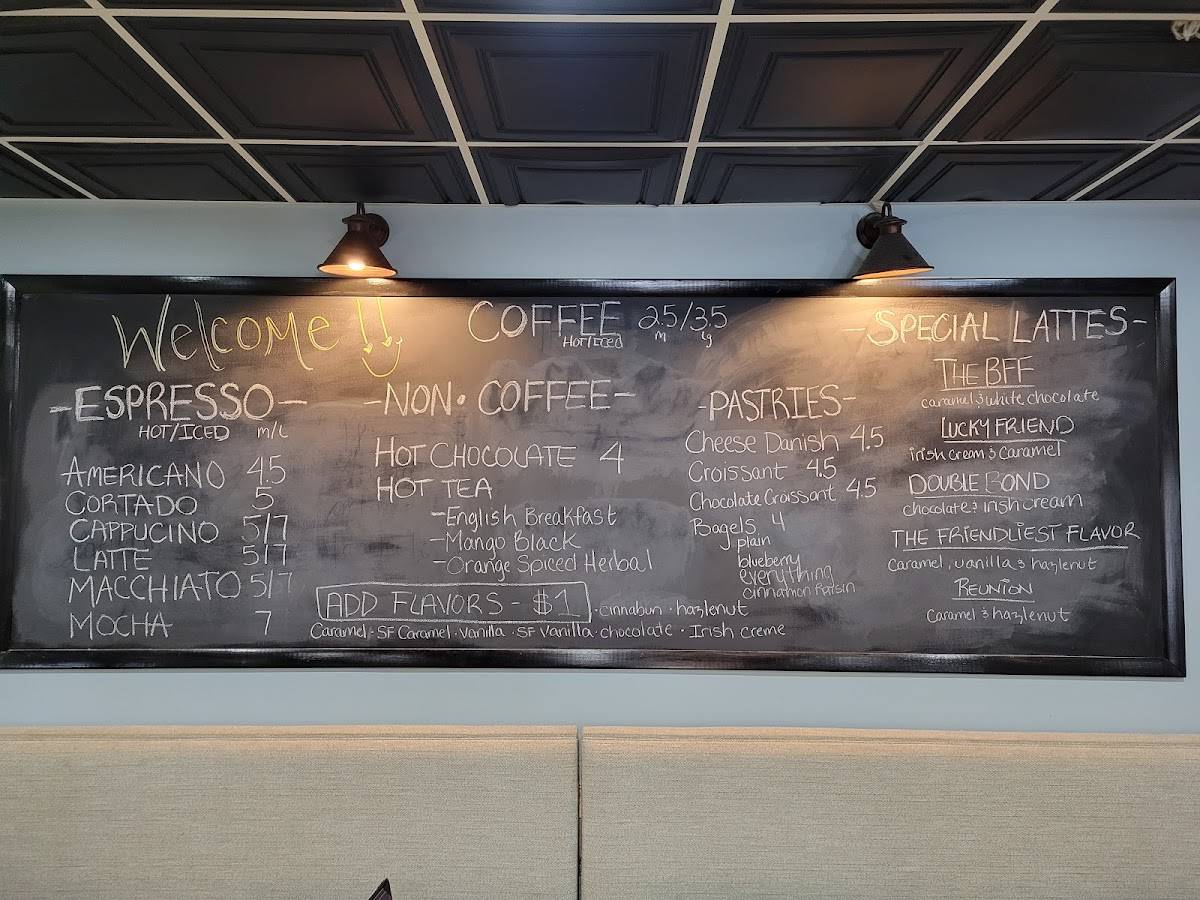 Welcome!!
COFFEE 2.5/3.5
HOT/ICED m lg
-ESPRESSO-
HOT/ICED M/L
AMERICANO 4.5
CORTADO 5
CAPPUCINO 5/7
LATTE 5/7
MACCHIATO 5/7
MOCHA 7
-NON·COFFEE-
HOT CHOCOLATE 4
HOT TEA
-English Breakfast
-Mango Black
-Orange Spiced Herbal
ADD FLAVORS - $1 · cinnabun · hazlenut
Caramel · SF Caramel · Vanilla · SF Vanilla · chocolate · Irish creme
-PASTRIES-
Cheese Danish 4.5
Croissant 4.5
Chocolate Croissant 4.5
Bagels 4
plain
blueberry
everything
cinnamon raisin
-SPECIAL LATTES-
THE BFF
caramel & white chocolate
LUCKY FRIEND
irish cream & caramel
DOUBLE BOND
chocolate & irish cream
THE FRIENDLIEST FLAVOR
Caramel, vanilla & hazlenut
REUNION
Caramel & hazlenut